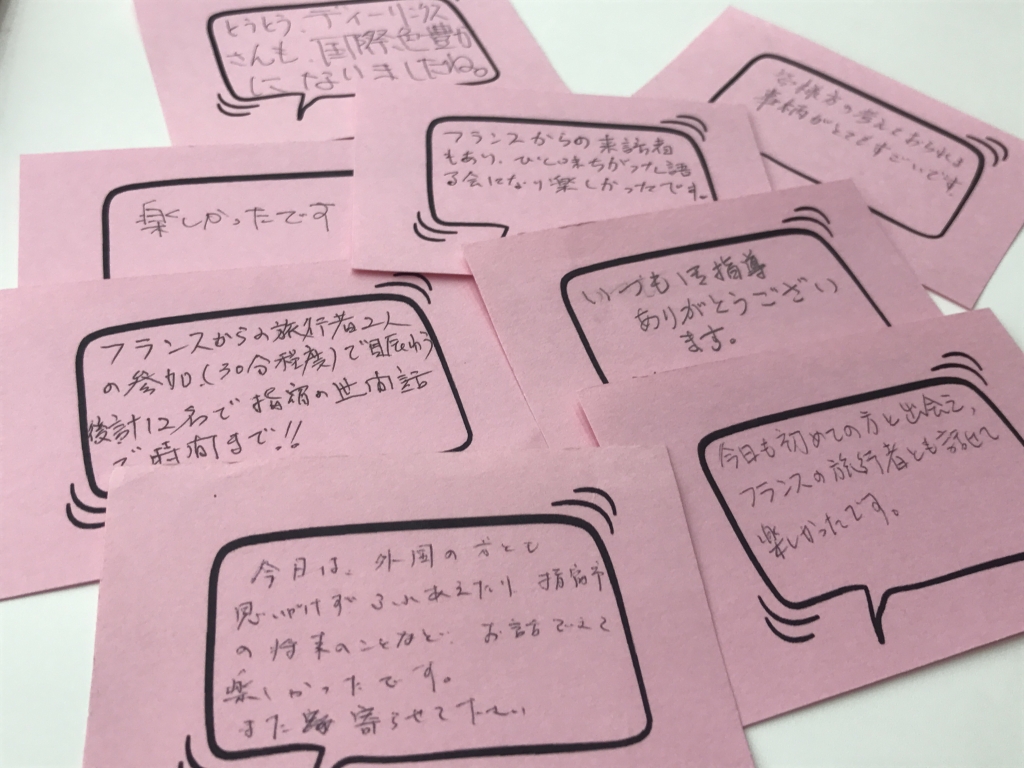 とうとう、ディーリンクス
さんも、国際色豊か
になりましたね。
フランスからの来訪者
もあり、ひと味ちがった語
る会になり楽しかったです。
皆様方の考えておられる
事柄がとてもすごいです。
楽しかったです
いつもご指導
ありがとうござい
ます。
フランスからの旅行者2人
の参加(30分程度)で賑わう
後計12名で指宿の世間話
で時間まで!!
今日も初めての方と出会え,
フランスの旅行者とも話せて
楽しかったです。
今月は、外国の方とも
思いがけずふれあえたり、指宿市
の将来のことなど、お話できて
楽しかったです。
また 寄らせて下さい